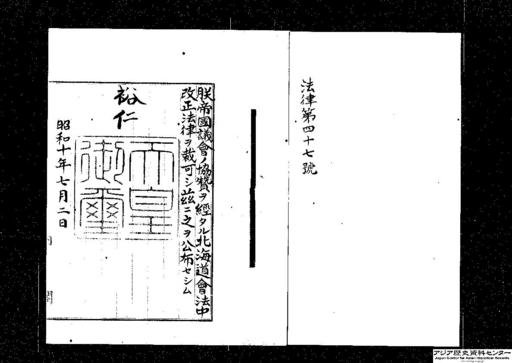 法律第四十七號
朕帝國議會ノ協贊ヲ經タル北海道會法中
改正法律ヲ裁可シ茲ニ之ヲ公布セシム
裕仁
天皇
御璽
昭和十年七月二日
アジア歴史資料センター
Japan Center for Asian Historical Records